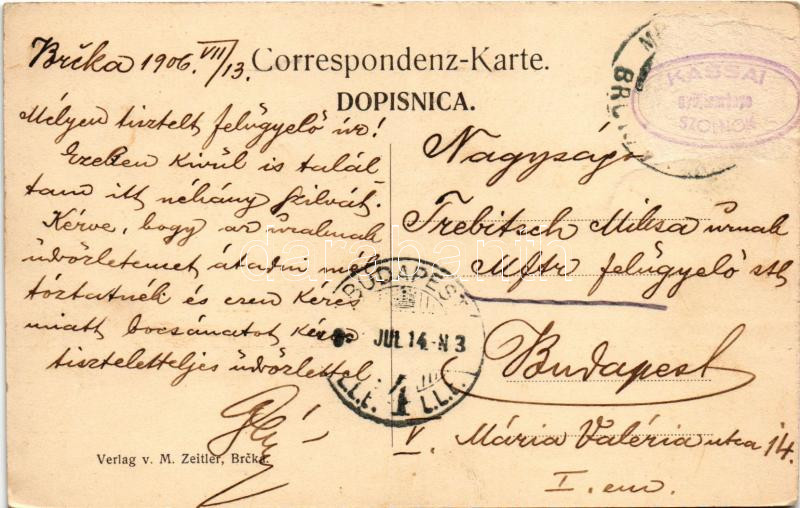 Brčka 1906. VII/13.
Correspondenz-Karte.
DOPISNICA.
Mélyen tisztelt felügyelő úr!
Ezeken kivül is talál-
tam itt néhány szilvát.
Kérve, hogy az uralmnak
üdvözletemet átadni mél
tóztatnék és ezen kérés
miatt bocsánatot kérve
tiszteletteljes üdvözlettel
Verlag v. M. Zeitler, Brčka.
KASSAI
SZOLNOK
Nagyságos
Trebitsch Miksa úrnak
Mftr felügyelő stb
Budapest
V. Mária Valéria utca 14.
I. em.
BUDAPEST
JUL 14 N 3
4
darabanth